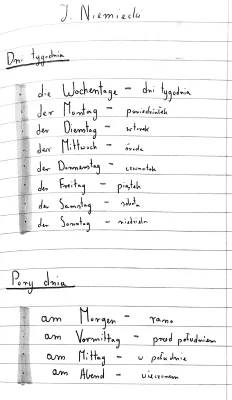 J. Niemiecki
Dni tygodnia
die Wochentage - dni tygodnia
der Montag - poniedziałek
der Dienstag - wtorek
der Mittwoch - środa
der Donnerstag - czwartek
der Freitag - piątek
der Samstag - sobota
der Sonntag - niedziela
Pory dnia
am Morgen - rano
am Vormittag - przed południem
am Mittag - w południe
am Abend - wieczorem